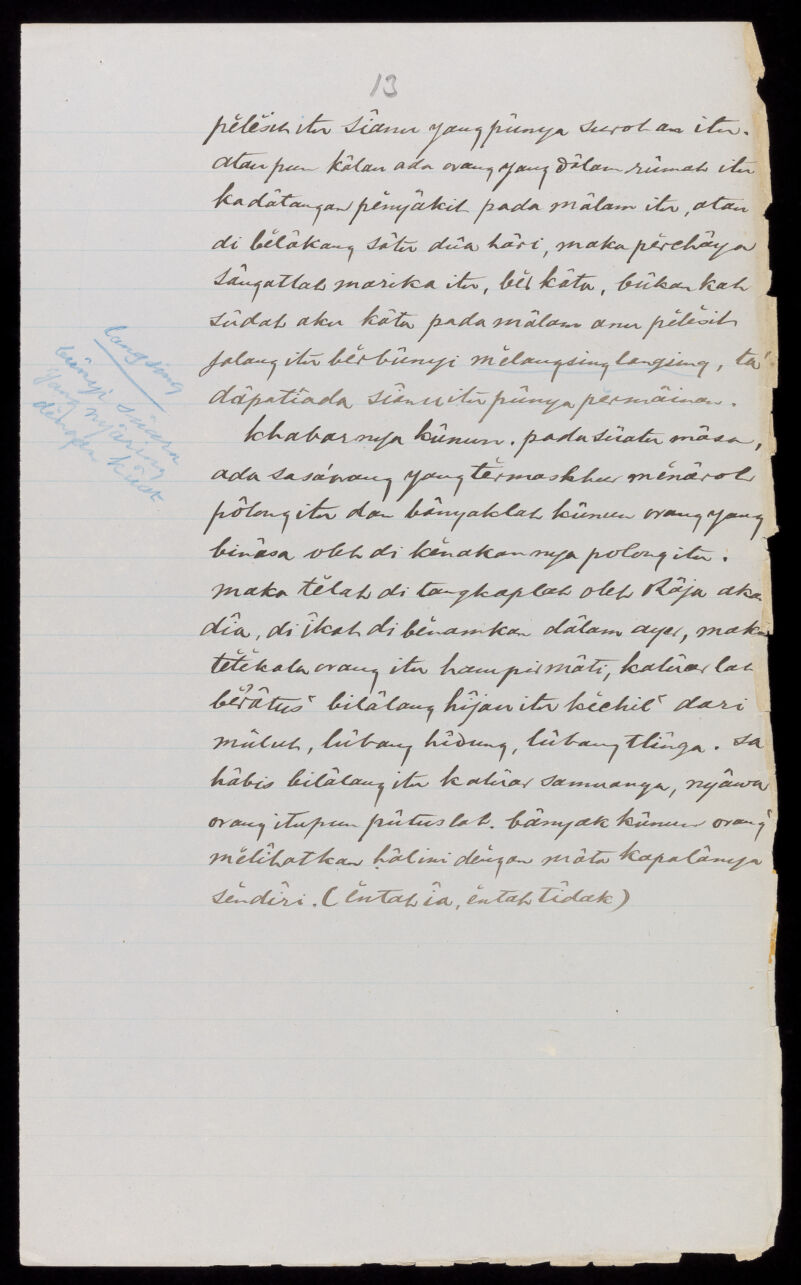 13
pĕlĕsit itu sîanu yang pûnya surohan itu.
atau pun kâlau ada orang yang dâlam rûmah itu
kadâtangan pĕnyâkit pada mâlam itu, atau
di bĕlâkang sâtu dûa hâri, maka pĕrchâya
sângatlah marika itu, bĕrkâta, bûkan kah
sûdah aku kâta pada mâlam anu pĕlĕsit
jalang itu bĕrbûnyi mĕlangsing langsing, ta'
dâpatîada sîanu itu pûnya pĕrmâinan.
langsing
bûnyi suâra
yang nyâring
dĕngan
Khabarnya kûnun. pada sûatu mâsa,
ada sasáorang yang tĕrmashhur mĕnâroh
pôlong itu dan bânyaklah kûnun orang yang
binâsa oleh di kĕnakannya polong itu.
maka tĕlah di tangkaplah oleh Râja akan
dîa, di îkat di bĕnamkan dâlam ayer, maka
tĕtĕkala orang itu hampir mâti, kalûar lah
bĕrâtus² bilâlang hîjau itu kĕchil² dari
mûlut, lûbang hîdung, lûbang tlînga. sa
hâbis bilâlang itu kalûar samuanya, nyâwa
orang itupun pûtuslah. bânyak kûnun orang²
mĕlîhatkan hâl ini dĕngan mâta kapalânya
sĕndîri. (ĕntah îa, ĕntah tîdak)